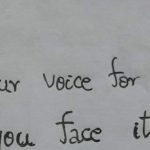 ur voice for
you face it